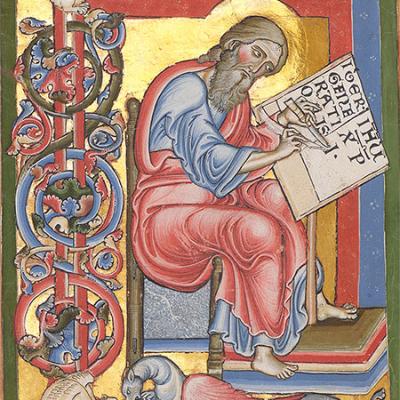 LIBER
GENE
RATI
OIS.
IHU
XP